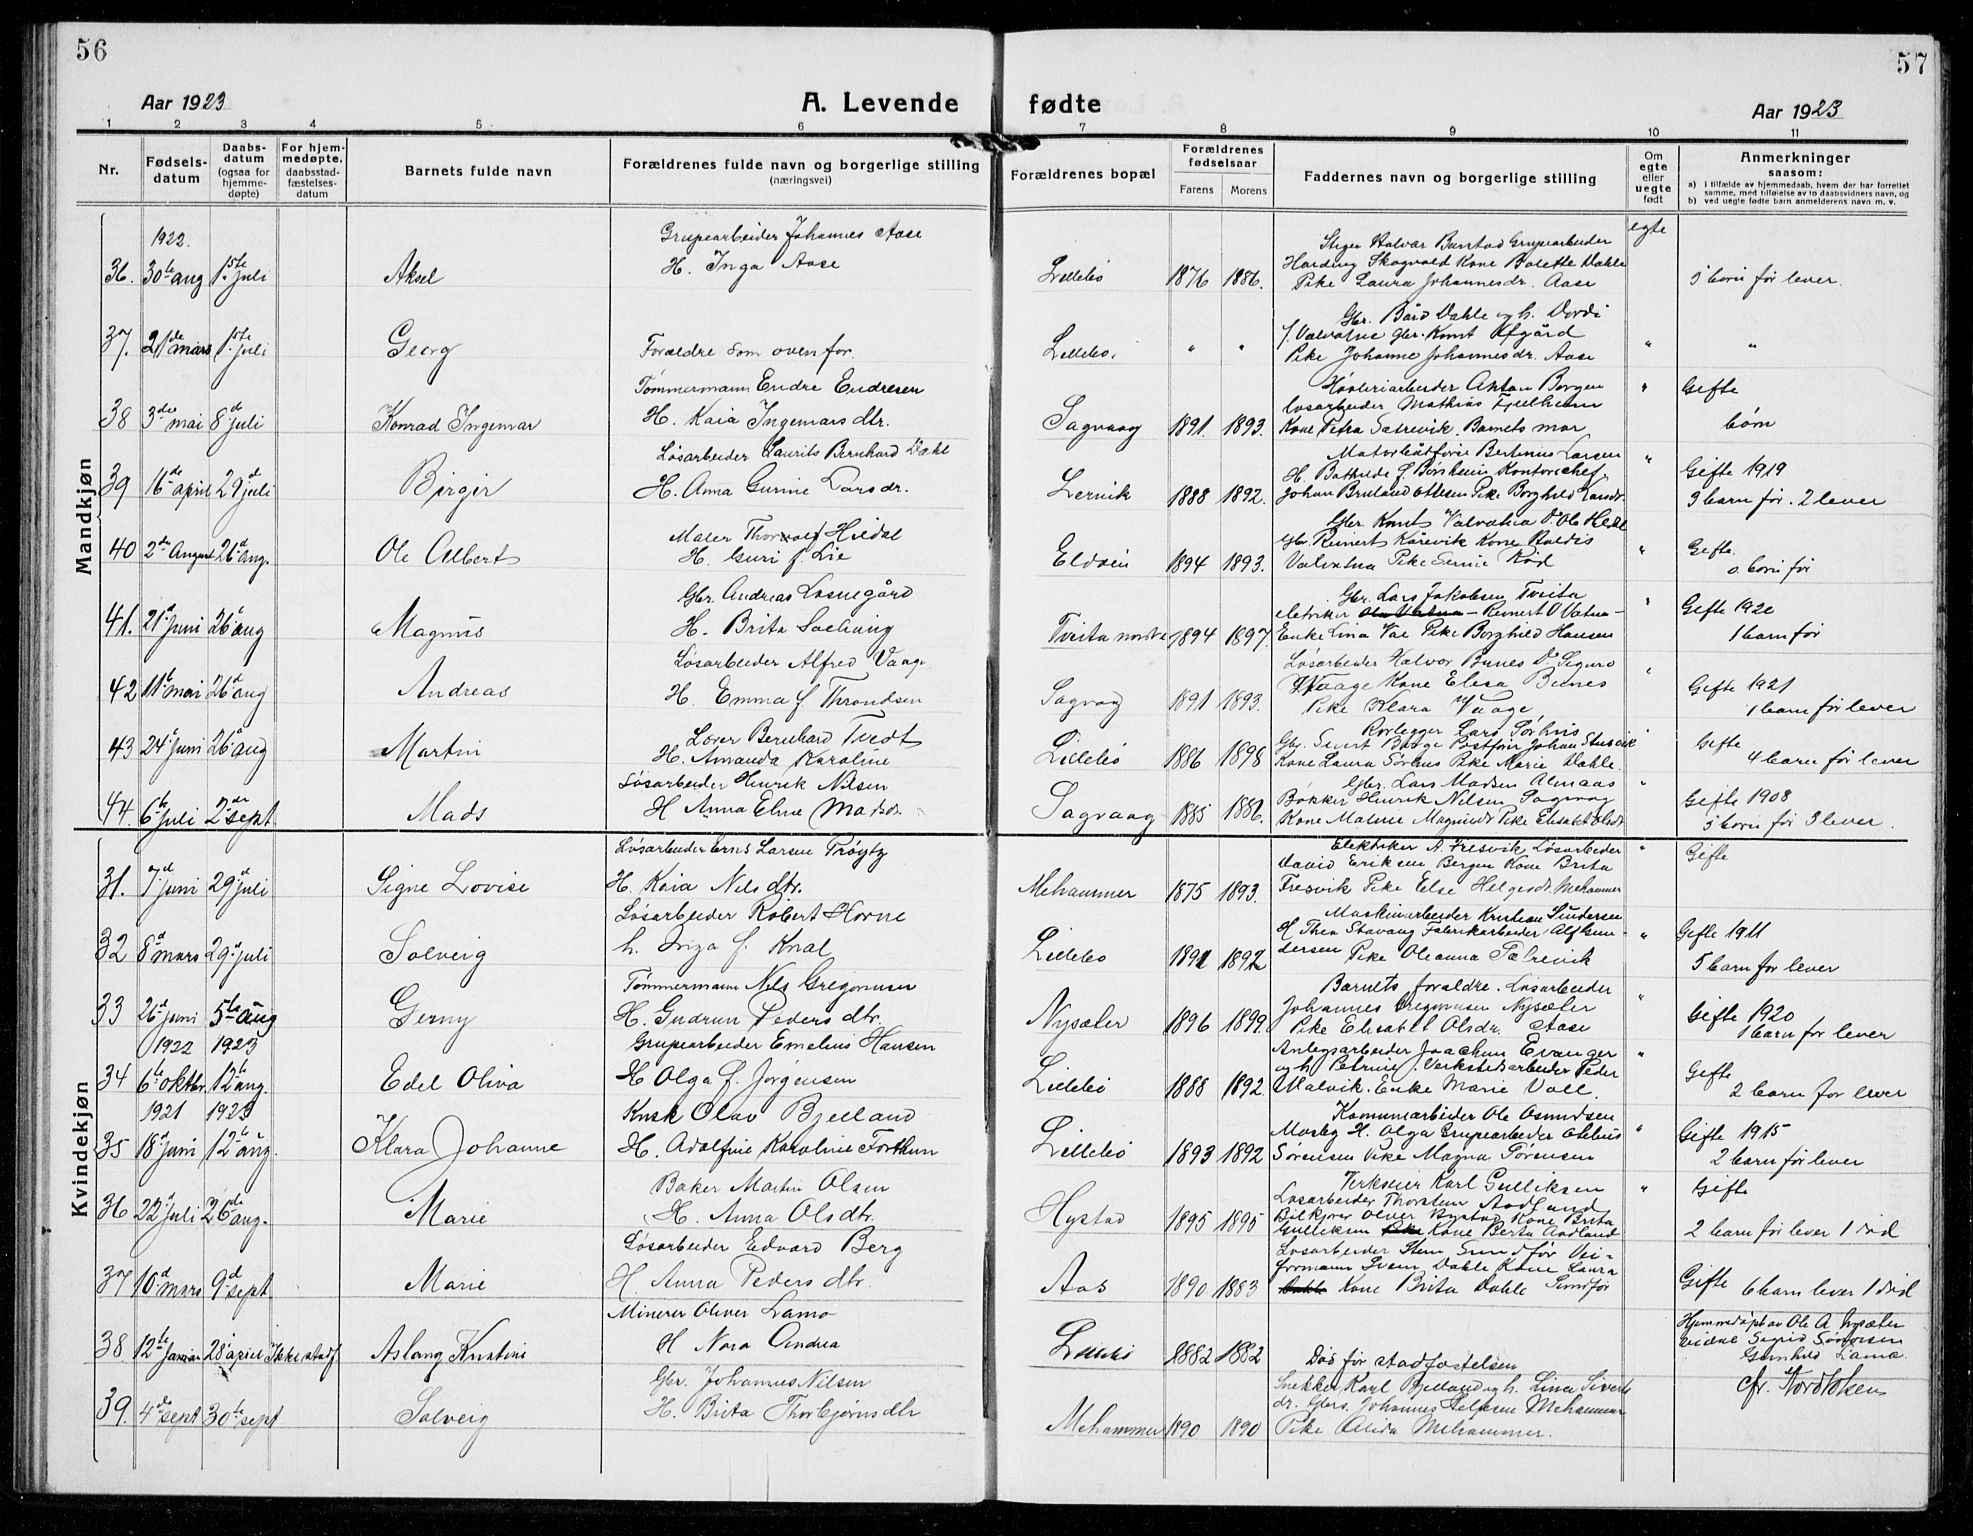 56
57
Aar 1923
A. Levende
fødte
Aar 1923
1 2 3 4 5 6 7 8 9 10 11
Nr.
Fødsels-
datum
Daabs-
datum
(ogsaa for
hjemme-
døpte)
For hjem-
medøpte,
daabsstad-
fæstelses-
datum
Barnets fulde navn
Forældrenes fulde navn og borgerlige stilling
(næringsvei)
Forældrenes bopæl
Forældrenes
fødselsaar
Farens Morens
Faddernes navn og borgerlige stilling
Om
egte
eller
uegte
født
Anmerkninger
saasom:
a) i tilfælde av hjemmedaab, hvem der har forrettet
samme, med tilføielse av to daabsvidners navn, og
b) ved uegte fødte barn anmelderens navn m. v.
Mandkjøn
1922.
36. 30te aug 1ste juli Aksel
Grupearbeider Johannes Aase
H. Inga Aase
Lillebö 1876 1886.
Stiger Halvar Grupearbeider
Harding Skogvold Kone Bolette Dahle
Pike Laura Johannesdr. Aase
egte
5 born før lever.
37. 21de mars 1ste juli Georg
Forældre som ovenfor.
Lillebö. " "
Gbr. Bård Dahle og h. Dordi
f. Valvatne Gbr. Knut
Pike Johanne Johannesdr. Aase
" "
38 3die mai 8d juli Konrad Ingemar
Tømmermann Endre Endresen
H. Kaia Ingemarsdtr.
Sagvaag 1891. 1893.
Høvleriarbeider Anton Borgen
Løsarbeider Mathias Fjellheim
Kone Petra Sætrevik. Barnets mor
" Gifte
børn
39 16de april 29d juli Birgir
Løsarbeider Laurits Bernhard Dahl
H. Anna Gurine Larsdr.
Lervik 1888 1892.
Motorbåtfører Bertinius Larsen
H. Bathilde f. Børsheim Kontorchef
Johan Bruland Ottesen Pike Borghild Larsdr.
" Gifte 1919
3 barn før. 2 lever
40 2den August 26d aug. Ole Albert
Maler Thorvald Hidal
H. Guri f. Lie
Eldøen 1894 1893.
Gbr. Knut Valvatna Do Ole
Gbr. Reinert Kårevik Kone Haldis
Valvatna Pike
" Gifte.
0. born før
41. 21d juni 26d aug Magnus
Gbr. Andreas Losnegård
H. Brita
Tveita 1894 1897.
Gbr. Lars Jakobsen Tveita
Reinert O Vatna
Enke Lina Vae Pike Borghild Hansen
" Gifte 1920
1 barn før
42 11te mai 26d aug Andreas
Løsarbeider Alfred Vaage
H. Emma f. Throndsen
Sagvaag 1891 1893.
Løsarbeider Halvor Bunes Do Sigurd
Waage Kone Elesa Bunes
Pike Klara Waage
" Gifte 1921
1 barn før lever
43 24d juni 26d aug Martin
Bernhard Tvedt
H. Amanda Karoline
Lillebö 1886 1898
Rørlegger Lars Sørhus
Gbr. Sivert Postfører Johan
Kone Laura Sørhus Pike Marie Dahle.
" Gifte
4 barn før lever
44. 6te juli 2den sept. Mads
Løsarbeider Henrik Nilsen
H Anna Eline Madsdr.
Sagvaag 1885 1886.
Gbr. Lars Madsen Almaas
Bøkker Henrik Nilsen Sagvaag
Kone Malene Magnusdr. Pike Elisabet Olsdr.
" Gifte 1908
5 born før 3 lever.
Kvindekjøn
31. 7d juni 29d juli Signe Lovise
Løsarbeider Larsen Trøytz
H. Kaia Nilsdtr.
Mehammer 1875 1893.
Elektriker A. Fresvik Løsarbeder
David Eriksen Bergen Kone Brita
Fresvik Pike Else Helgesdt. Mehammer
" Gifte
32 8d mars 29d juli Solveig
Løsarbeider Robert Horne
h. Inga f. Knal
Lillebö 1891 1892
Maskinarbeider Kristian Sundersen
H Thea Stavang Fabrikarbeider Alf Gun-
dersen Pike Oleanna Sætrevik
" Gifte 1911
5 barn før lever
33 26d juni 5te aug Gerny
Tømmermann Nils Gregorius​en
H. Gudrun Pedersdtr.
Nysæter 1896 1899.
Barnets foraldre. Løsarbeider
Johannes Gregoriusen Nysæter
Pike Elisabet Olsdr. Aase
" Gifte 1920
1 barn før lever
1922 1923
34 6te oktbr. 12te aug. Edel Oliva
Grupearbeider Emelius Hansen
H Olga f. Jørgensen
Lillebö 1888 1892.
Anlegsarbeider Joachim Evanger
og h. Petrine f. Verkstedarbeider Peder
Malvik. Enke Marie Voll.
" Gifte
2 barn før lever
1921 1923
35 18d juni 12te aug. Klara Johanne
Kusk Olav Bjelland
H. Adolfine Karoline Forthun
Lillebö 1893 1892
Kommunearbeider Ole Osmundsen
Mosby H. Olga Grupearbeider
Sørensen Pike Magna Sørensen
" Gifte 1915
2 barn før lever
36 22d juli 26de aug. Marie
Baker Martin Olsen
H. Anna Olsdtr.
Hystad 1895 1895
Verkseier Karl Gulliksen
Løsarbeider Thorstein Aadland
Bilkjører Oliver Hystad Kone Brita
Gulliksen Kone Berta Aadland
" Gifte
2 barn før lever 1 død
37 10d mars 9d sept. Marie
Løsarbeider Edvard Berg
H. Anna Pedersdtr.
Aas 1890 1883
Løsarbeider Sten Sundfør Vei-
formann Svein Dahle Kone Laura
Kone Brita Dahle Sundfør
Gifte 6 barn lever 1 død
38 12te Januar 28 april Ikke stadf Aslaug Kristine
Minerer Oliver Lamo
H Nora Andrea
Lillebö 1882 1882
Død før stadfæstelsen
Hjemmedøpt av Ole A. Nysæter
vidne Sigrid Sørensen
Gunhild Lamo.
39. 4de sept 30te sept Solveig
Gbr. Johannes Nilsen
H. Brita Thorbjørnsdtr
Mehammer 1890 1890
Snekker Karl Bjelland og h. Lina Siverts
dr. Gbr. Johannes Mehammer
Pike Alida Mehammer.